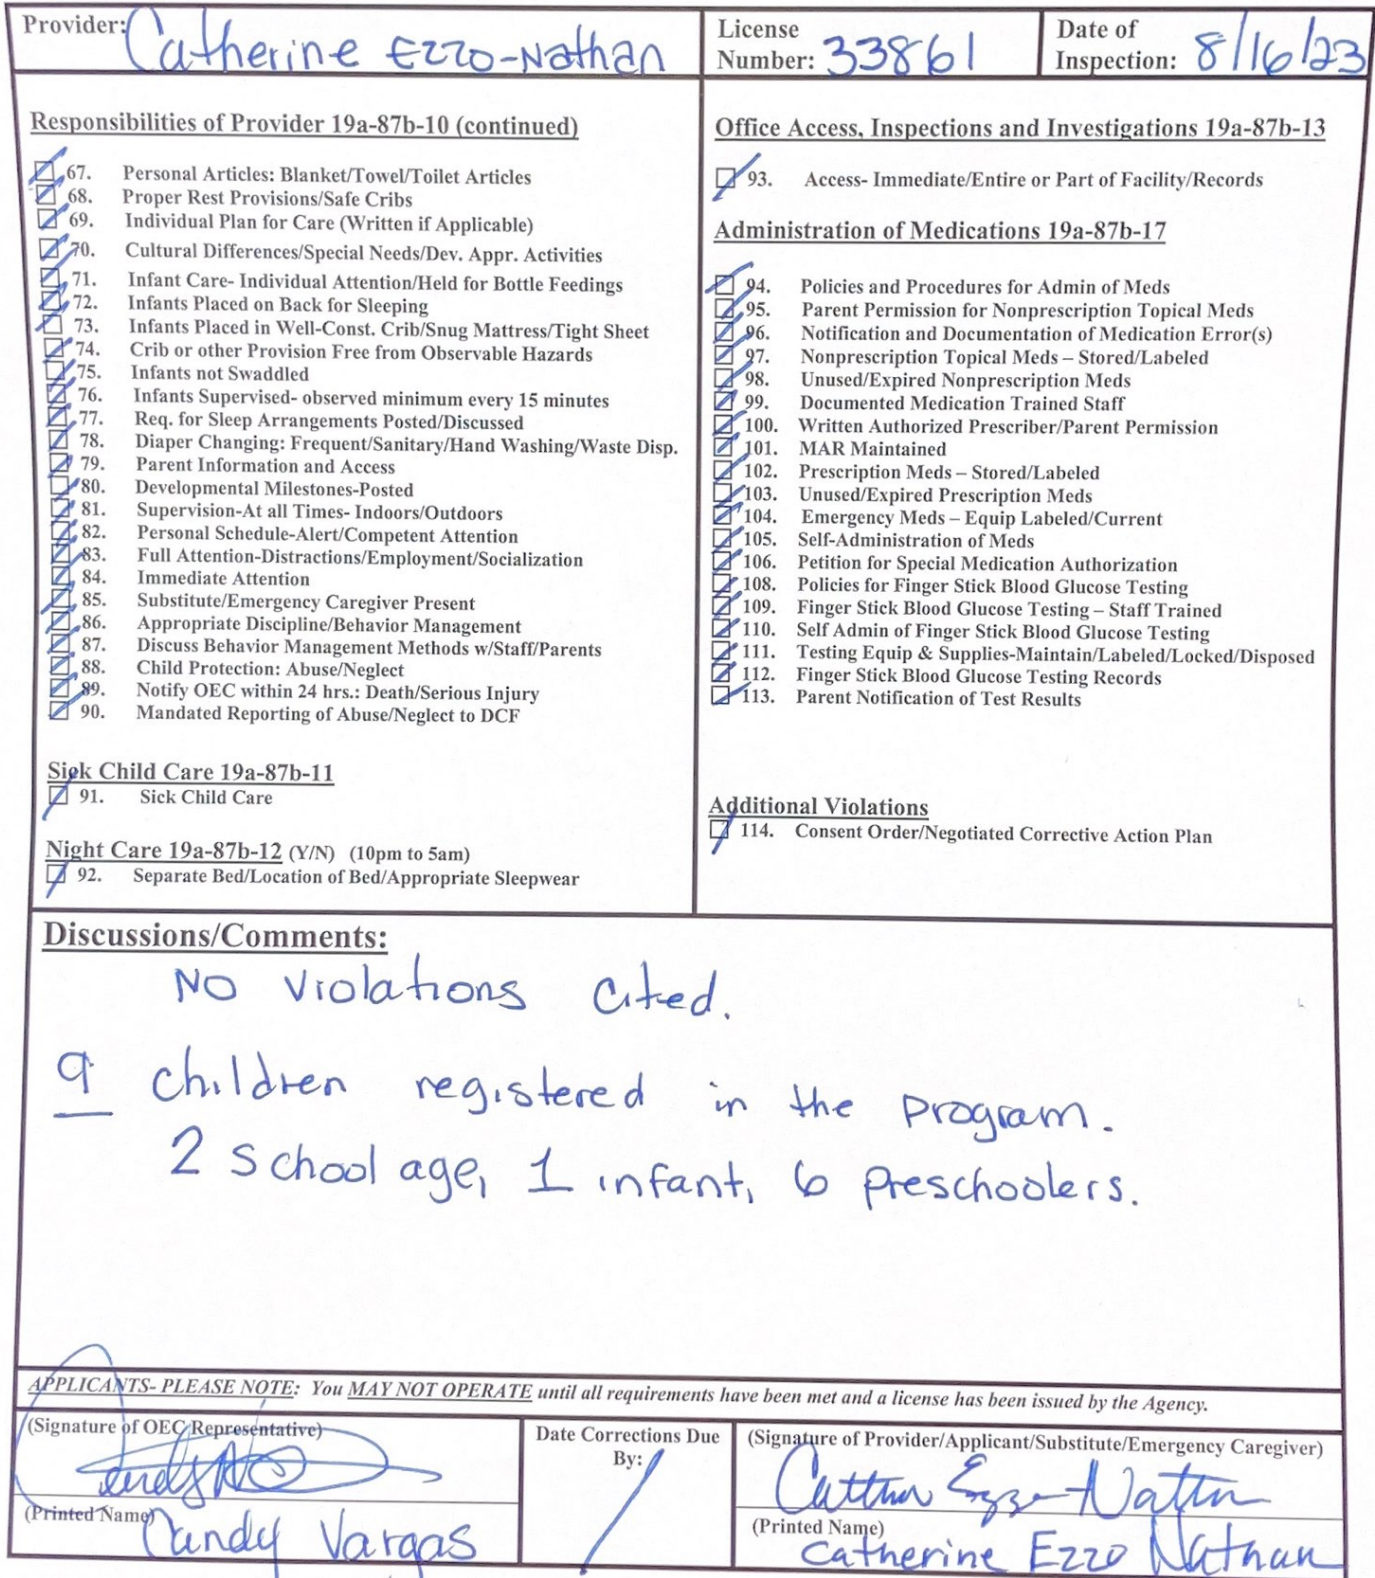 Provider: Catherine Ezzo-Nathan
License Number: 33861
Date of Inspection: 8/16/23
Responsibilities of Provider 19a-87b-10 (continued)
67. Personal Articles: Blanket/Towel/Toilet Articles
68. Proper Rest Provisions/Safe Cribs
69. Individual Plan for Care (Written if Applicable)
70. Cultural Differences/Special Needs/Dev. Appr. Activities
71. Infant Care- Individual Attention/Held for Bottle Feedings
72. Infants Placed on Back for Sleeping
73. Infants Placed in Well-Const. Crib/Snug Mattress/Tight Sheet
74. Crib or other Provision Free from Observable Hazards
75. Infants not Swaddled
76. Infants Supervised- observed minimum every 15 minutes
77. Req. for Sleep Arrangements Posted/Discussed
78. Diaper Changing: Frequent/Sanitary/Hand Washing/Waste Disp.
79. Parent Information and Access
80. Developmental Milestones-Posted
81. Supervision-At all Times- Indoors/Outdoors
82. Personal Schedule-Alert/Competent Attention
83. Full Attention-Distractions/Employment/Socialization
84. Immediate Attention
85. Substitute/Emergency Caregiver Present
86. Appropriate Discipline/Behavior Management
87. Discuss Behavior Management Methods w/Staff/Parents
88. Child Protection: Abuse/Neglect
89. Notify OEC within 24 hrs.: Death/Serious Injury
90. Mandated Reporting of Abuse/Neglect to DCF
Sick Child Care 19a-87b-11
91. Sick Child Care
Night Care 19a-87b-12 (Y/N) (10pm to 5am)
92. Separate Bed/Location of Bed/Appropriate Sleepwear
Office Access, Inspections and Investigations 19a-87b-13
93. Access- Immediate/Entire or Part of Facility/Records
Administration of Medications 19a-87b-17
94. Policies and Procedures for Admin of Meds
95. Parent Permission for Nonprescription Topical Meds
96. Notification and Documentation of Medication Error(s)
97. Nonprescription Topical Meds – Stored/Labeled
98. Unused/Expired Nonprescription Meds
99. Documented Medication Trained Staff
100. Written Authorized Prescriber/Parent Permission
101. MAR Maintained
102. Prescription Meds – Stored/Labeled
103. Unused/Expired Prescription Meds
104. Emergency Meds – Equip Labeled/Current
105. Self-Administration of Meds
106. Petition for Special Medication Authorization
108. Policies for Finger Stick Blood Glucose Testing
109. Finger Stick Blood Glucose Testing – Staff Trained
110. Self Admin of Finger Stick Blood Glucose Testing
111. Testing Equip & Supplies-Maintain/Labeled/Locked/Disposed
112. Finger Stick Blood Glucose Testing Records
113. Parent Notification of Test Results
Additional Violations
114. Consent Order/Negotiated Corrective Action Plan
Discussions/Comments:
No violations cited.
9 children registered in the program.
2 school age, 1 infant, 6 preschoolers.
APPLICANTS- PLEASE NOTE: You MAY NOT OPERATE until all requirements have been met and a license has been issued by the Agency.
(Signature of OEC Representative)
(Printed Name) Candy Vargas
Date Corrections Due
By: /
(Signature of Provider/Applicant/Substitute/Emergency Caregiver)
Catherine Ezzo-Nathan
(Printed Name)
Catherine Ezzo Nathan